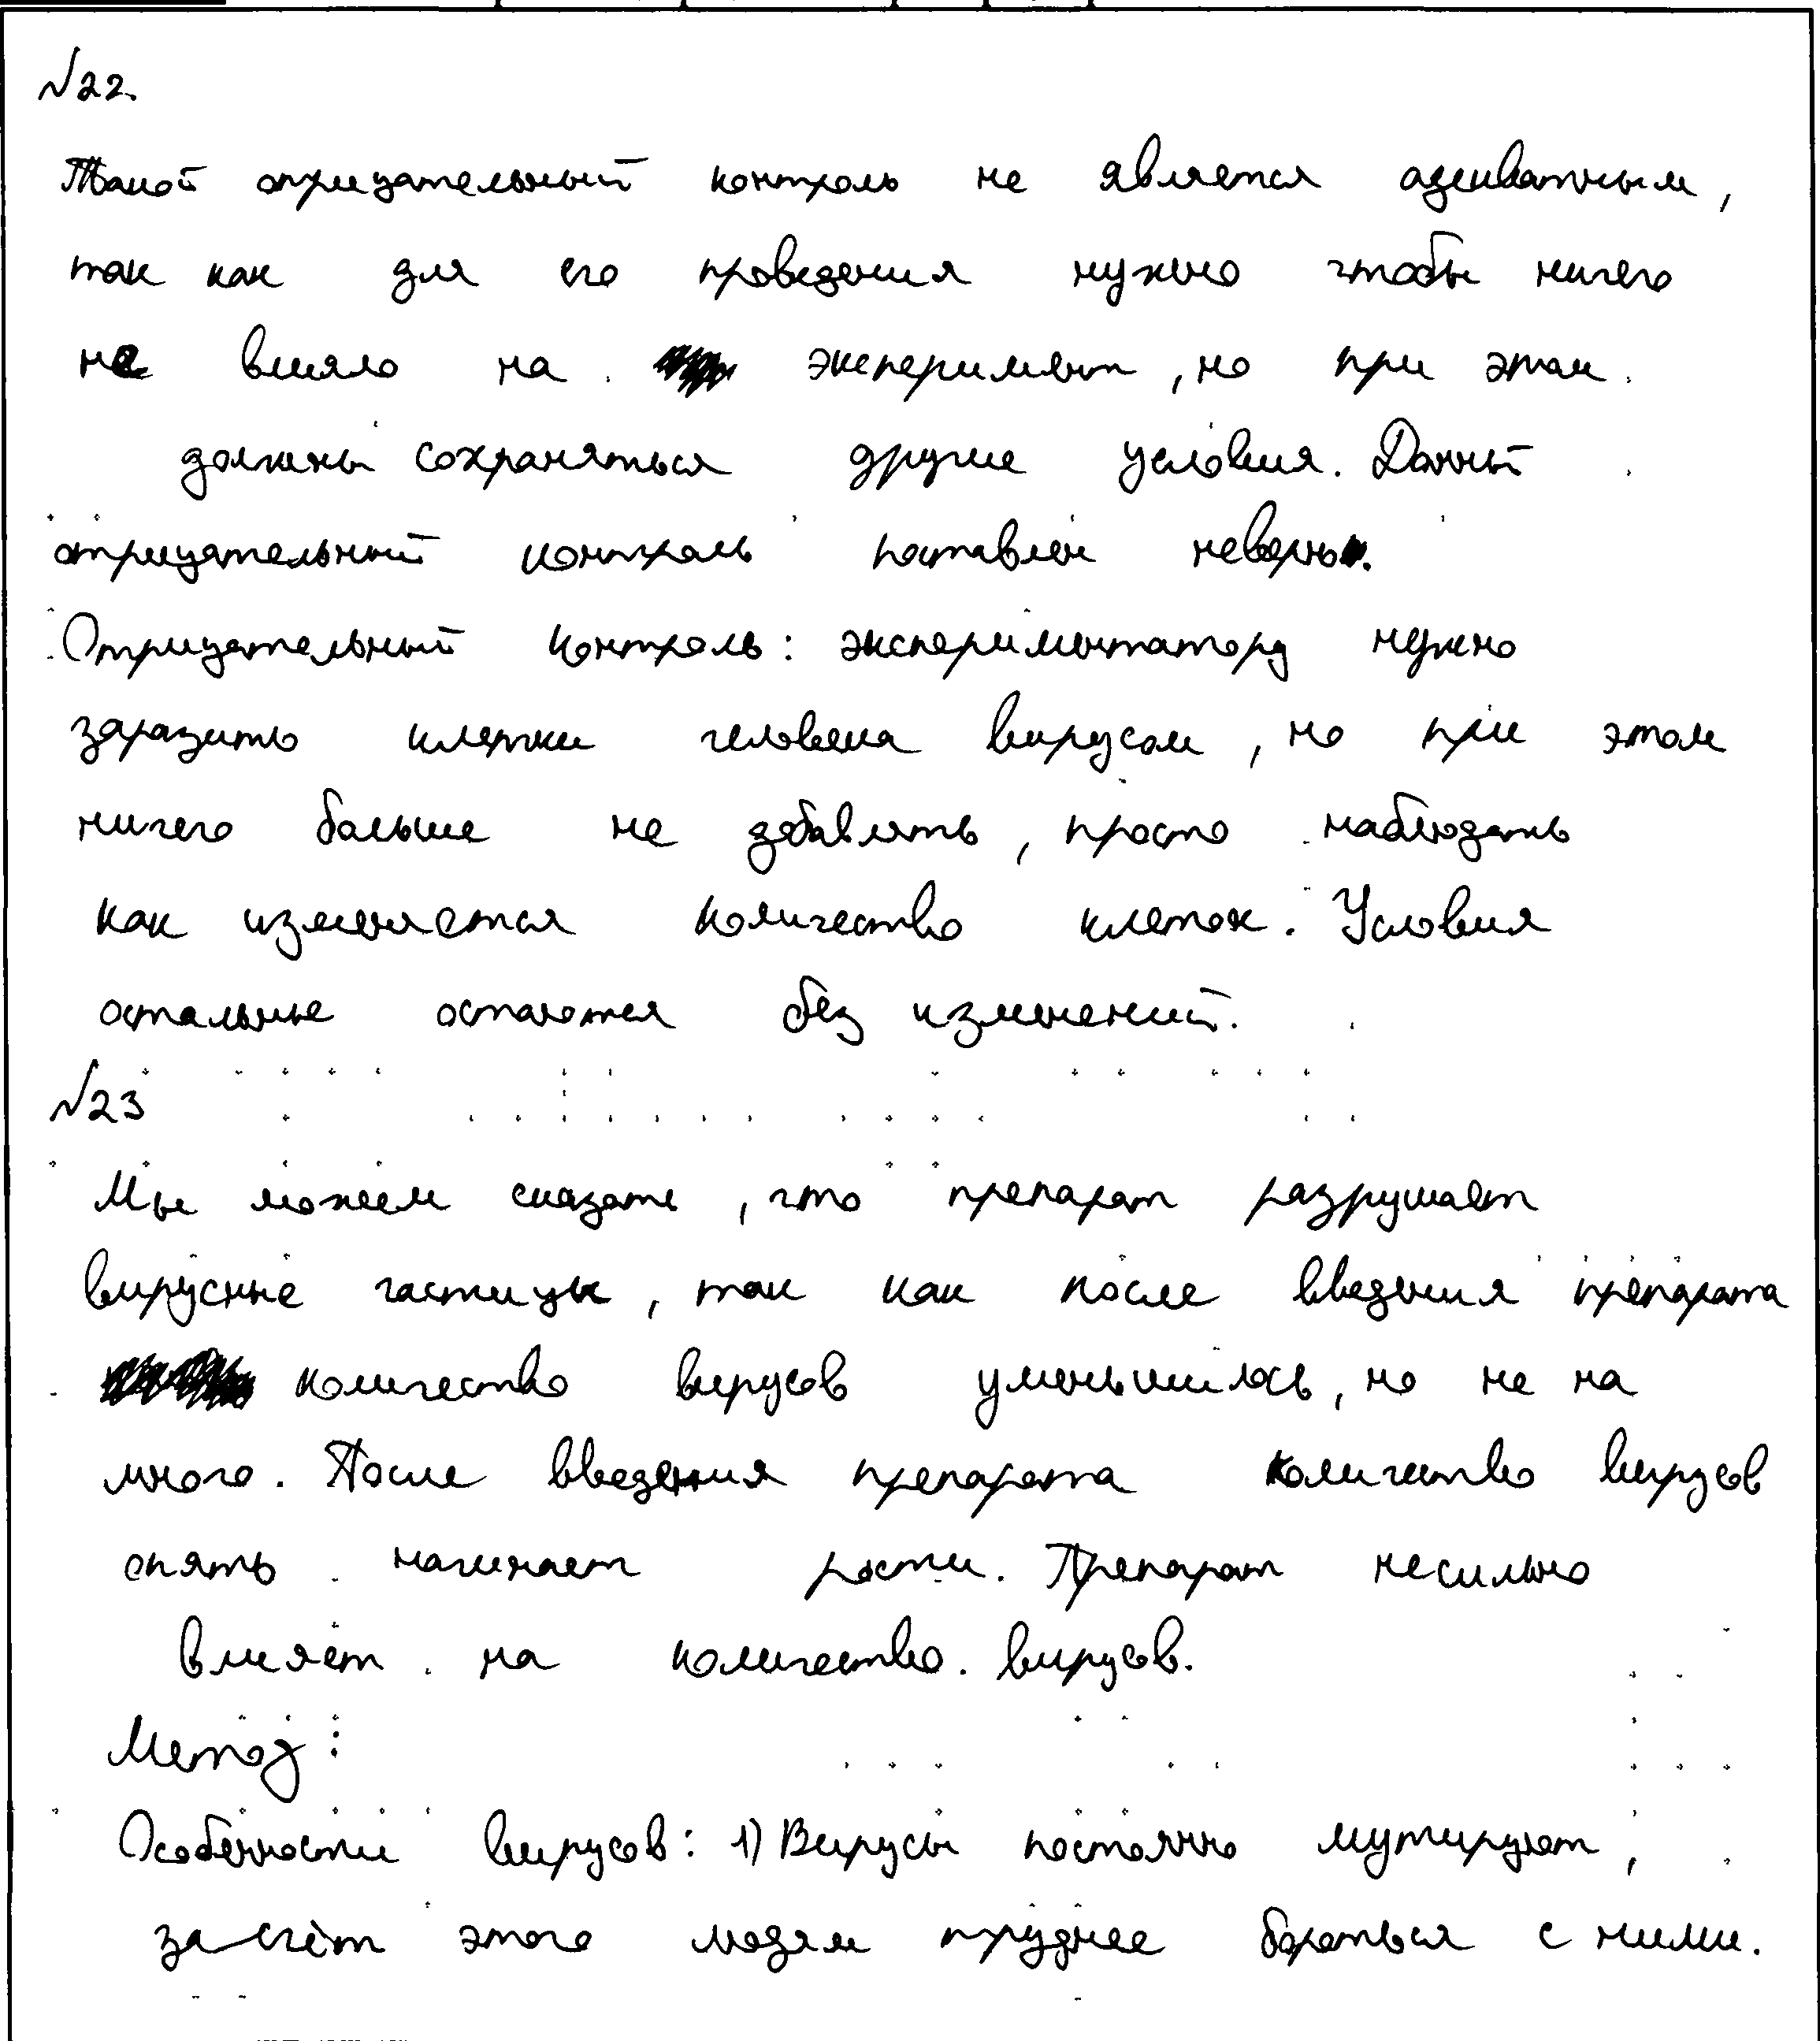 №22.
Такой отрицательный контроль не является адекватным,
так как для его проведения нужно чтобы ничего
не влияло на эксперимент, но при этом
должны сохраняться другие условия. Данный
отрицательный контроль поставлен неверно.
Отрицательный контроль: экспериментатору нужно
заразить клетки человека вирусом, но при этом
ничего больше не добавлять, просто наблюдать
как изменяется количество клеток. Условия
остальные остаются без изменений.
№23
Мы можем сказать, что препарат разрушает
вирусные частицы, так как после введения препарата
количество вирусов уменьшилось, но не на
много. После введения препарата количество вирусов
опять начинает расти. Препарат несильно
влияет на количество вирусов.
Метод:
Особенности вирусов: 1) Вирусы постоянно мутируют,
за счёт этого людям труднее бороться с ними.